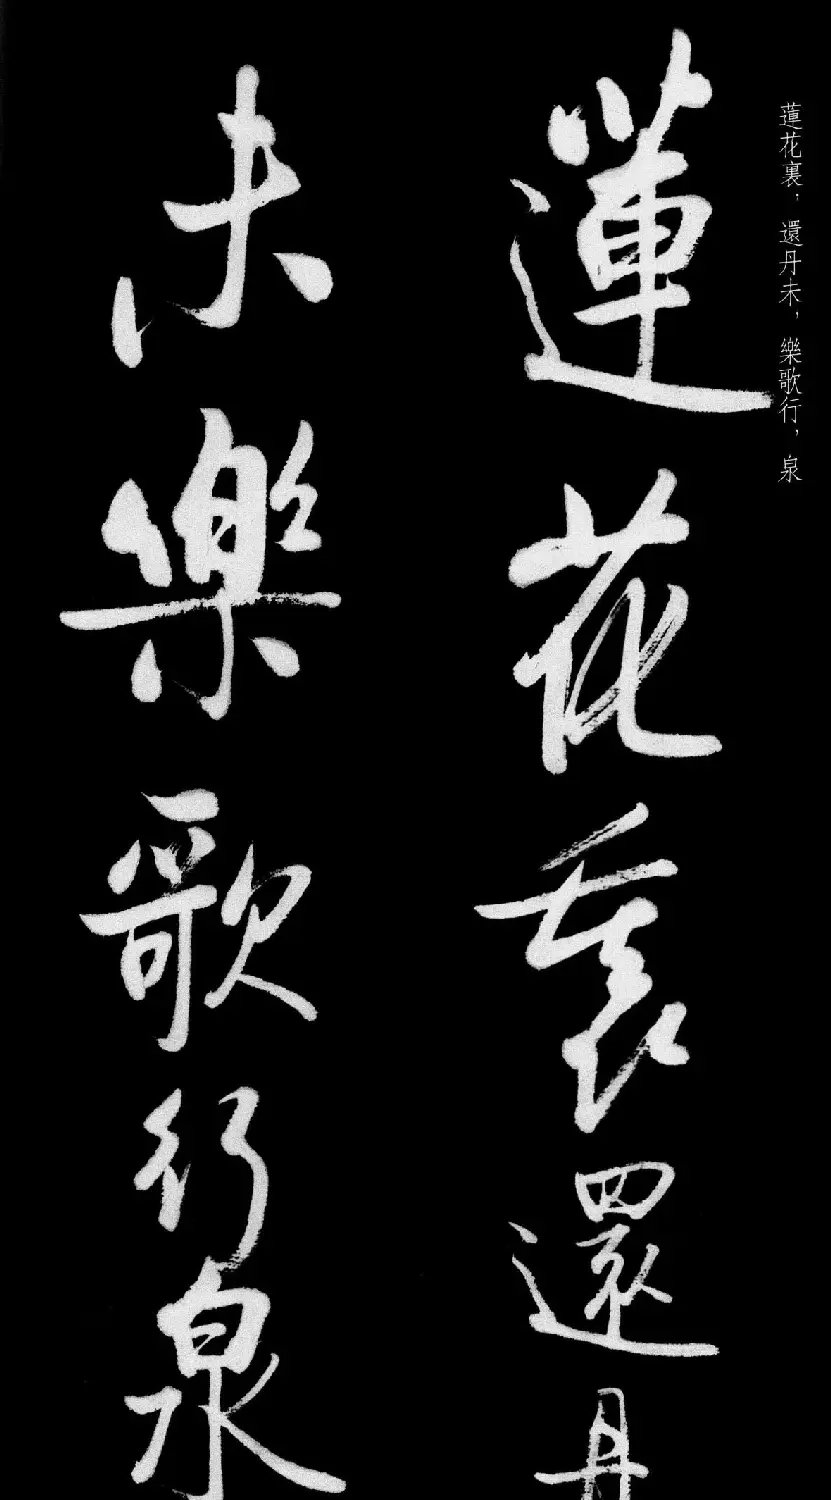 蓮花裏，還丹未，樂歌行，泉
蓮花裏還丹
未樂歌行泉